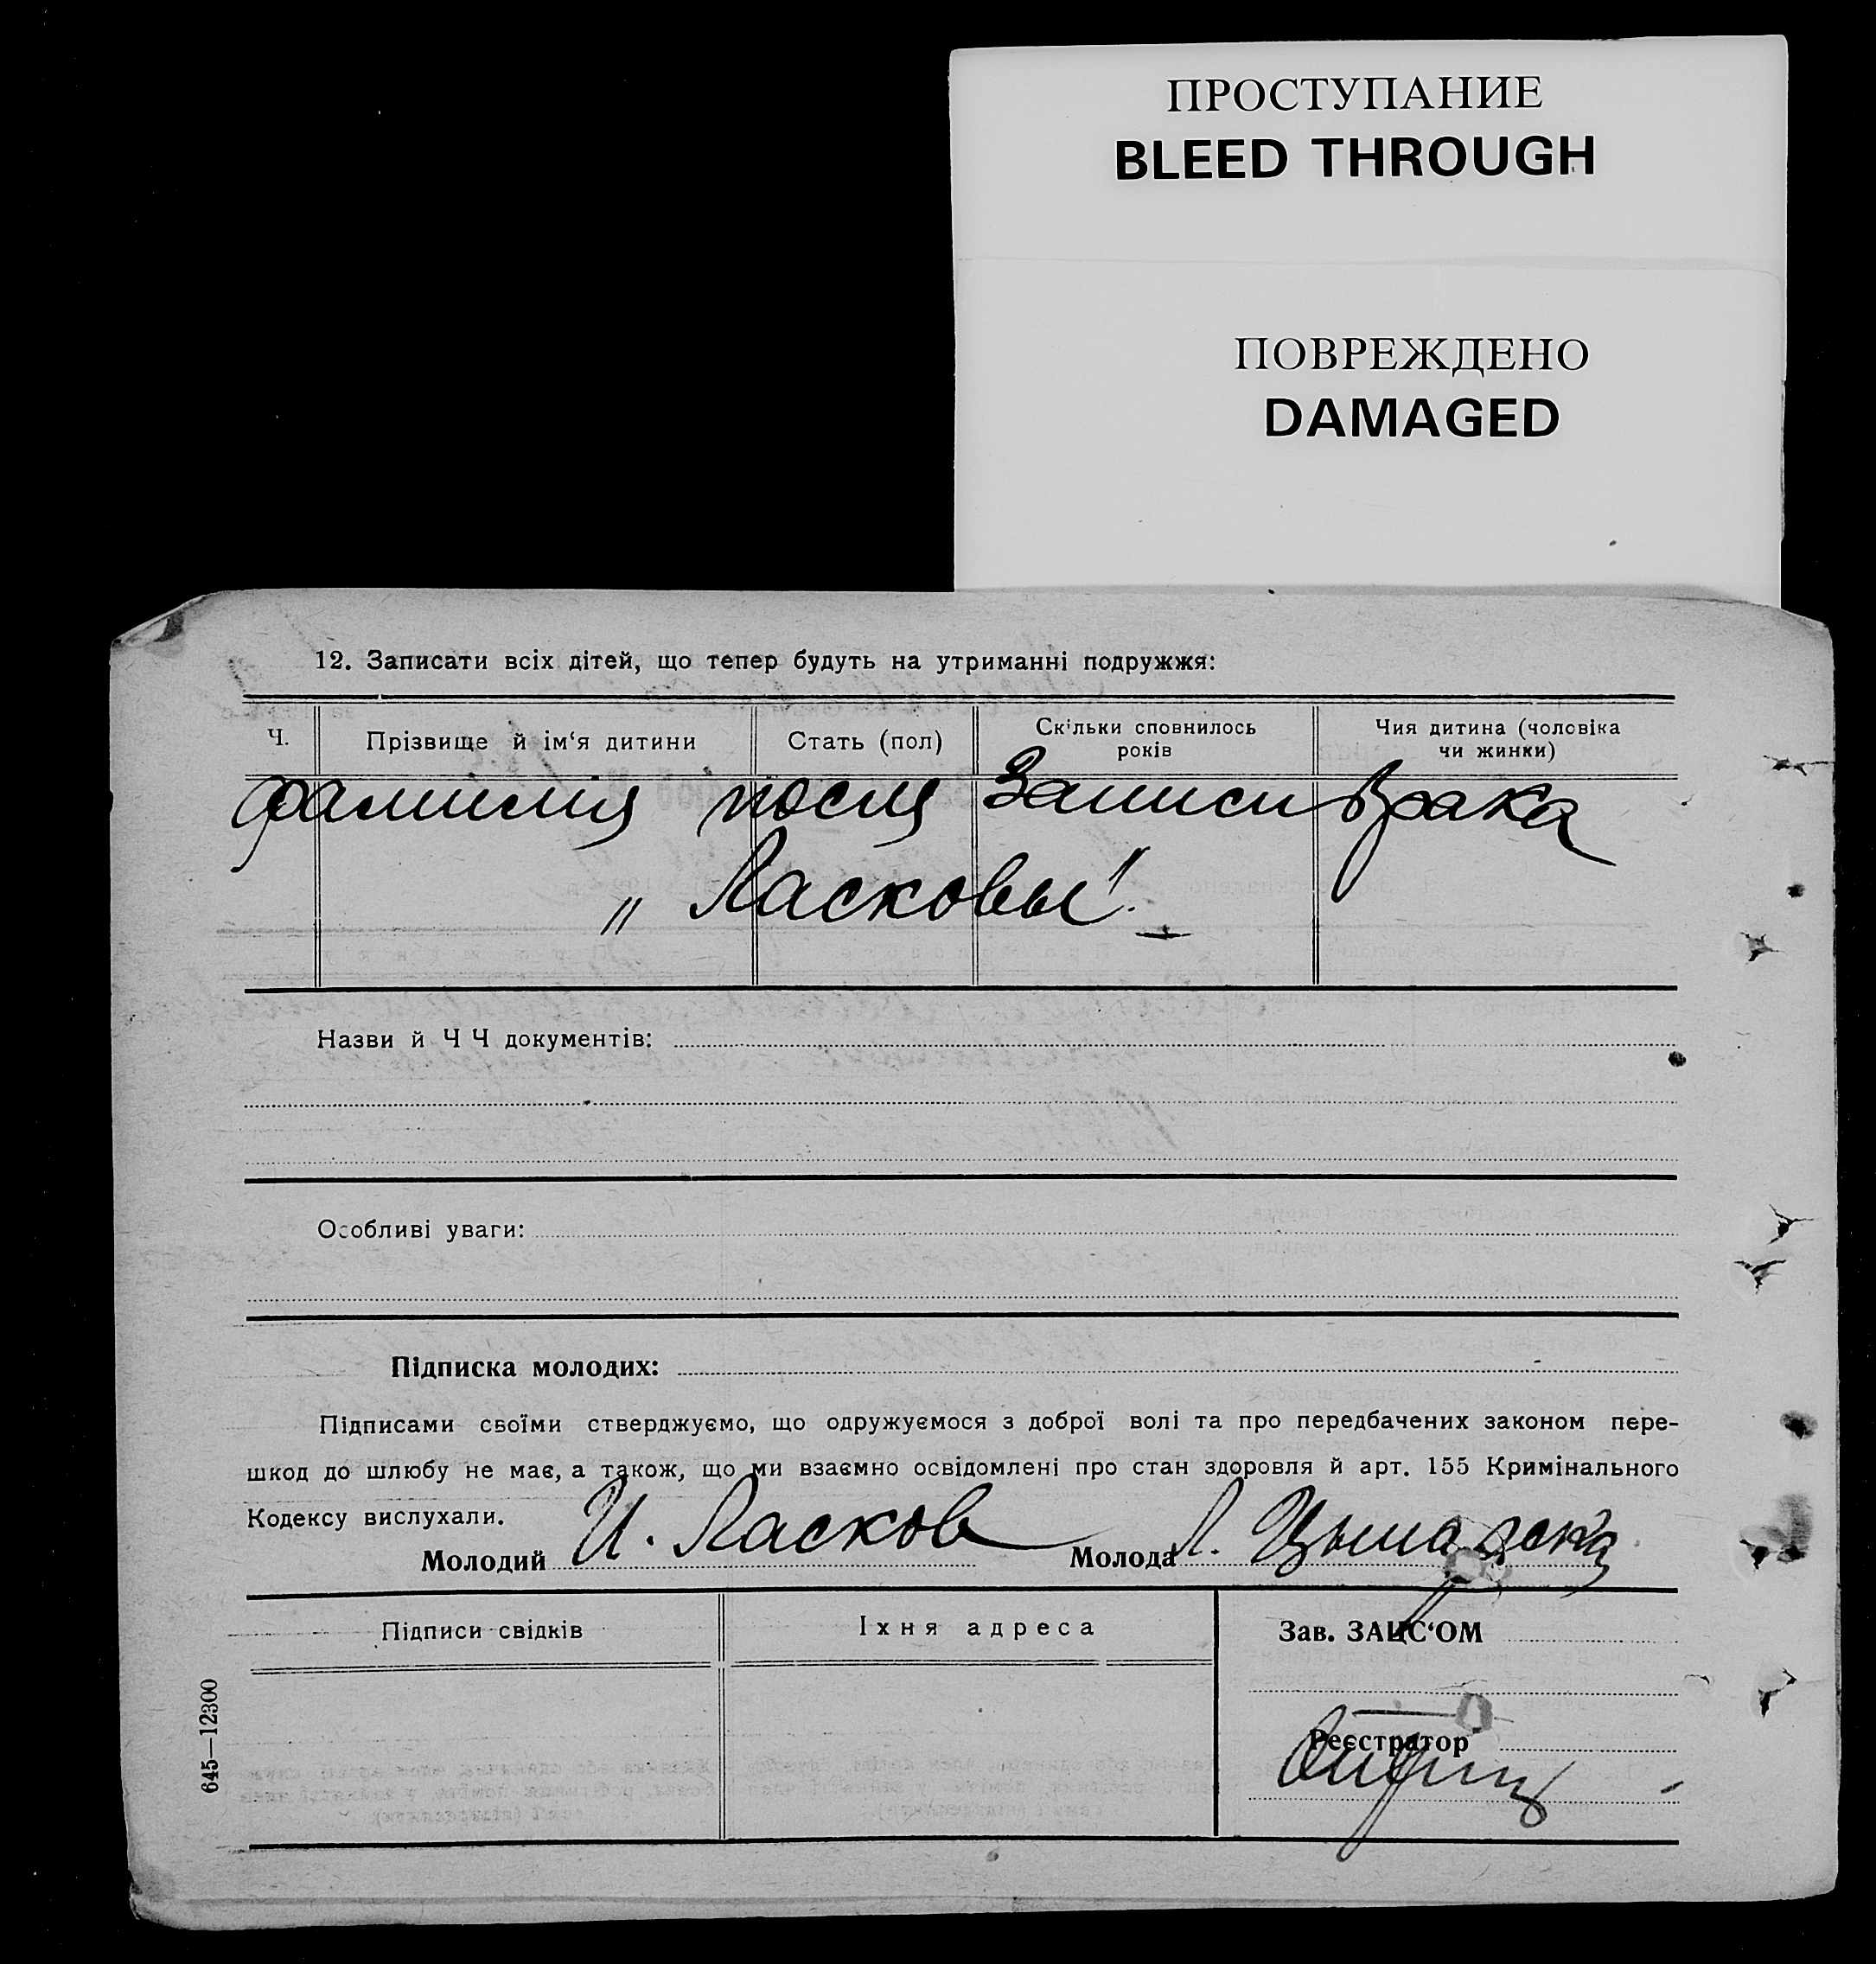 ПРОСТУПАНИЕ
BLEED THROUGH
ПОВРЕЖДЕНО
DAMAGED
12. Записати всіх дітей, що тепер будуть на утриманні подружжя:
Ч.
Прізвище й ім‘я дитини
Стать (пол)
Скільки сповнилось
років
Чия дитина (чоловіка
чи жинки)
фамилия после записи брака
„ Ласковы".
Назви й Ч Ч документів:
Особливі уваги:
Підписка молодих:
Підписами своїми стверджуємо, що одружуємося з доброї волі та про передбачених законом пере-
шкод до шлюбу не має, а також, що ми взаємно освідомлені про стан здоровля й арт. 155 Кримінального
Кодексу вислухали.
Молодий И. Ласков Молода Л.
Підписи свідків
Їхня адреса
Зав. ЗАЦС‘ОМ
Реєстратор
645—12300